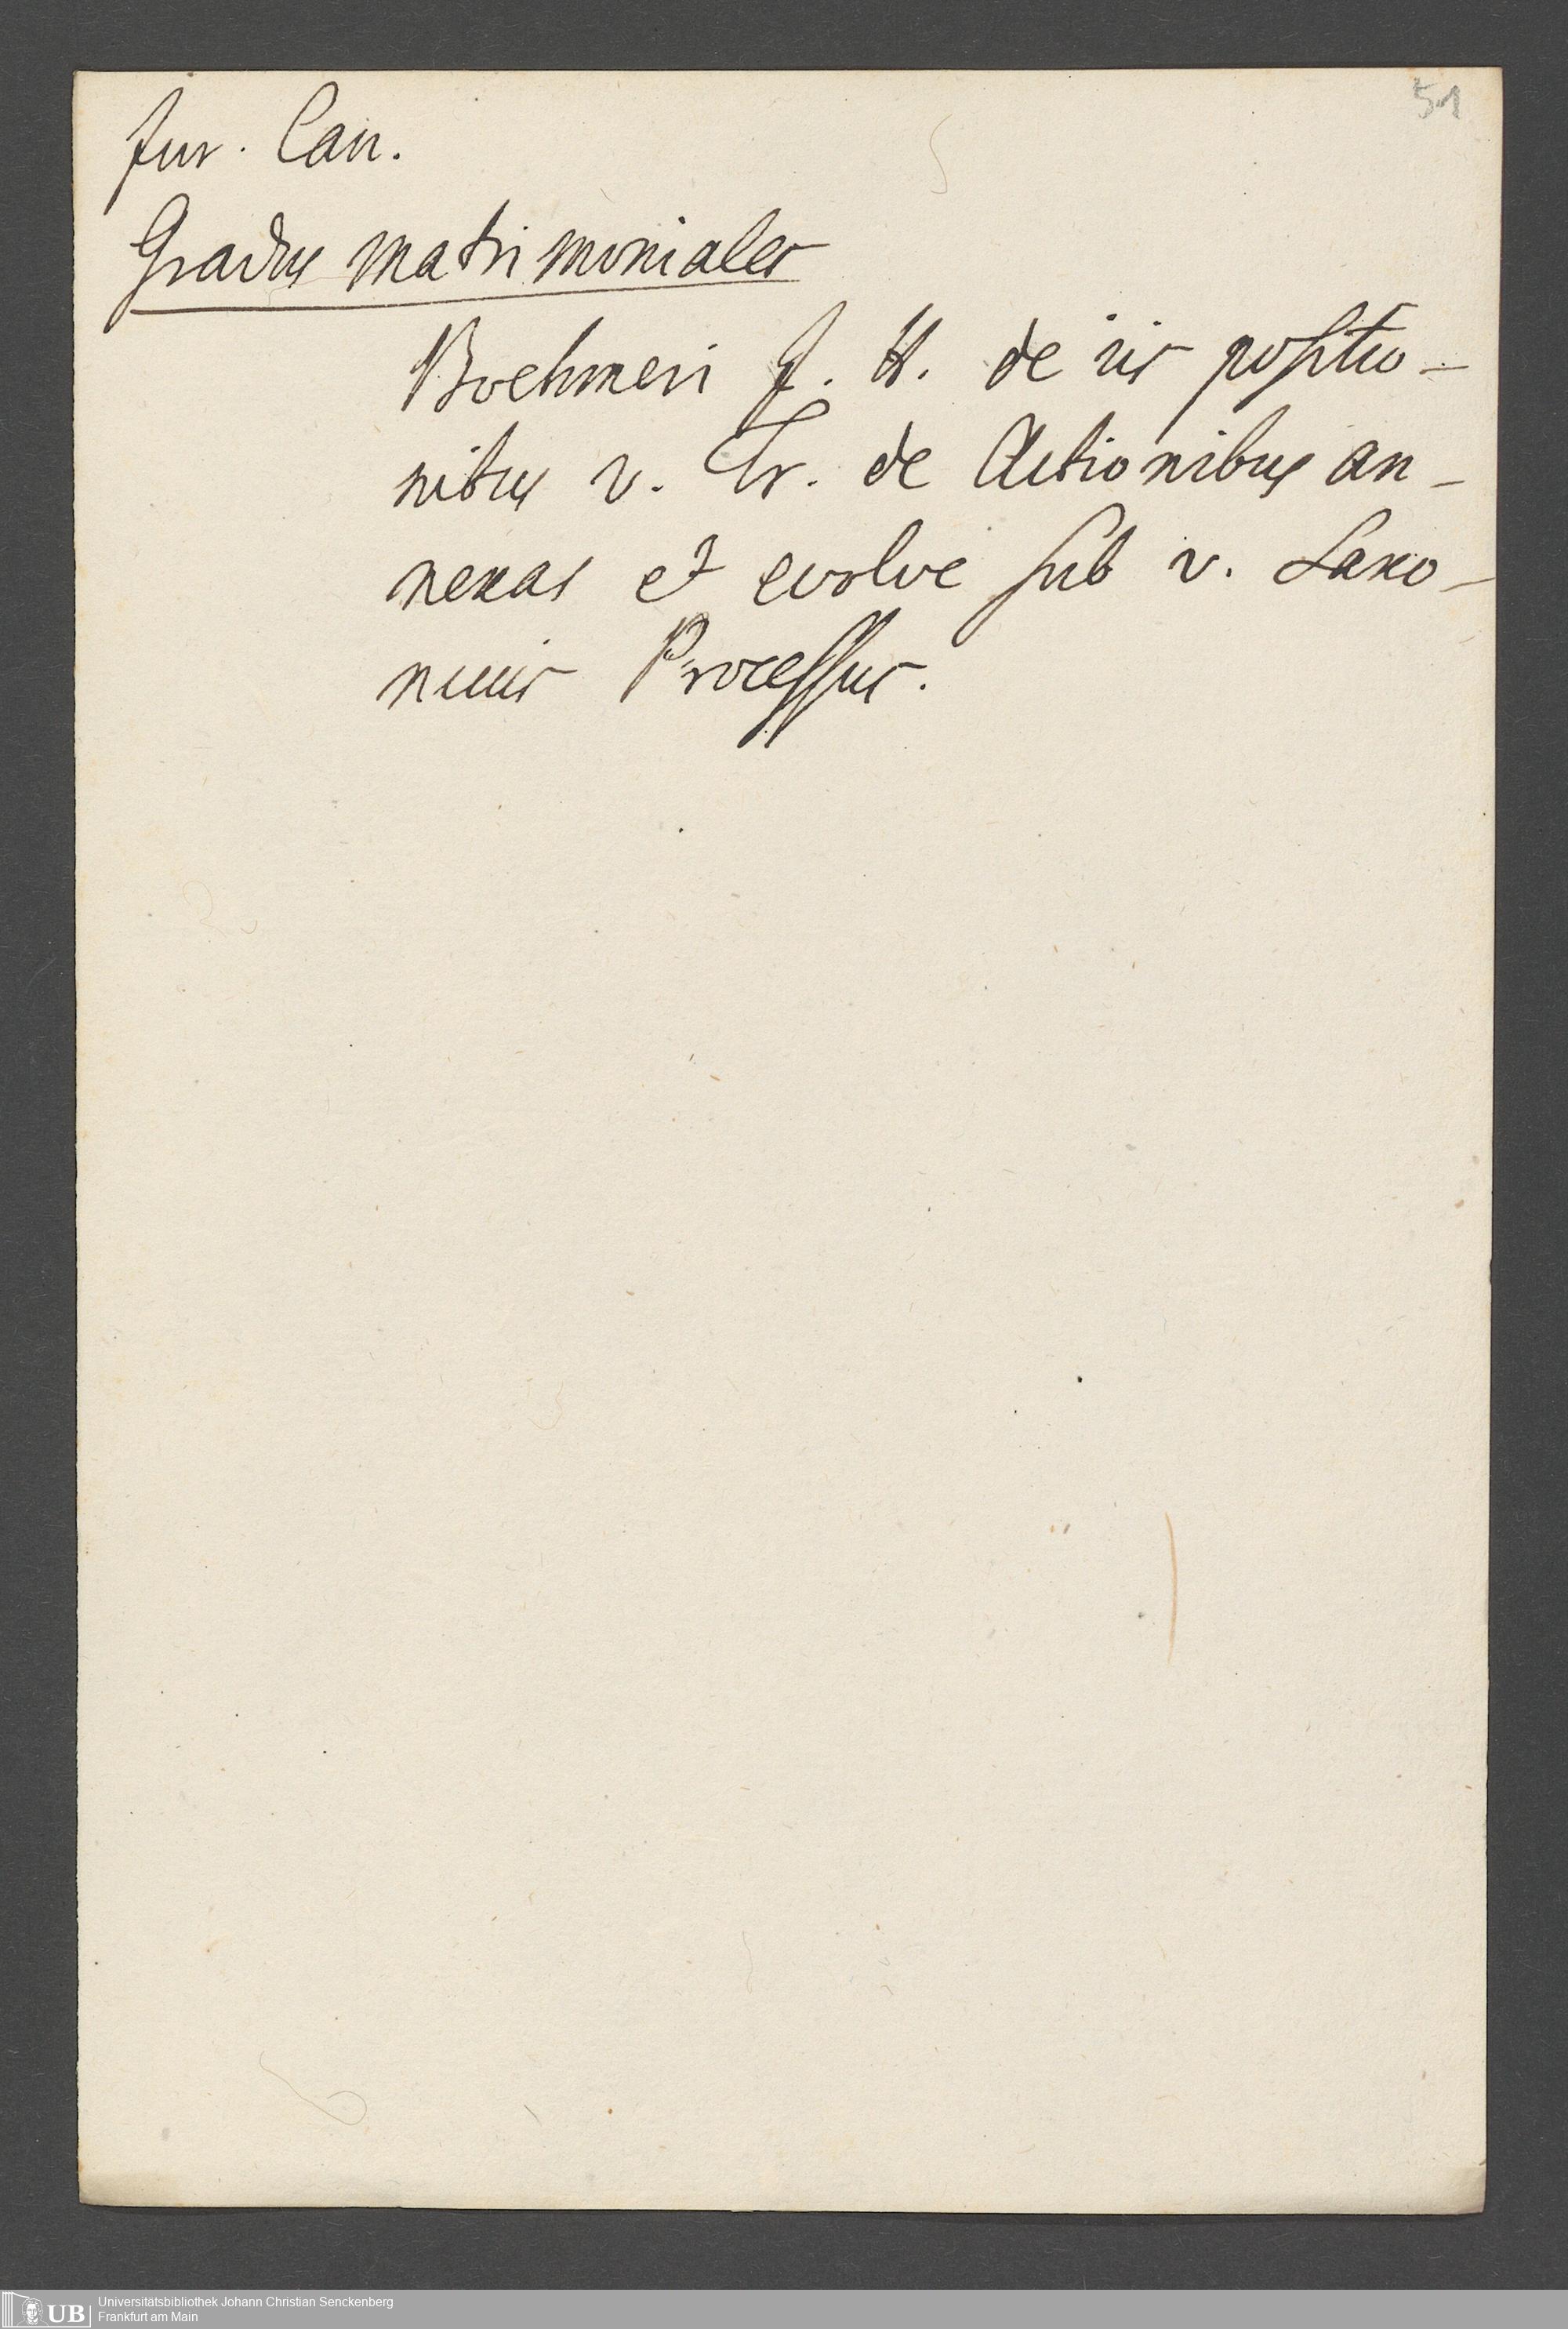 51
Jur. Can.
Gradus matrimoniales
Boehmeri J. H. de iis positio-
nibus v. Tr. de Actionibus an-
nexas et evolve sub v. Saxo-
nicus Processus.
UB Universitätsbibliothek Johann Christian Senckenberg
Frankfurt am Main